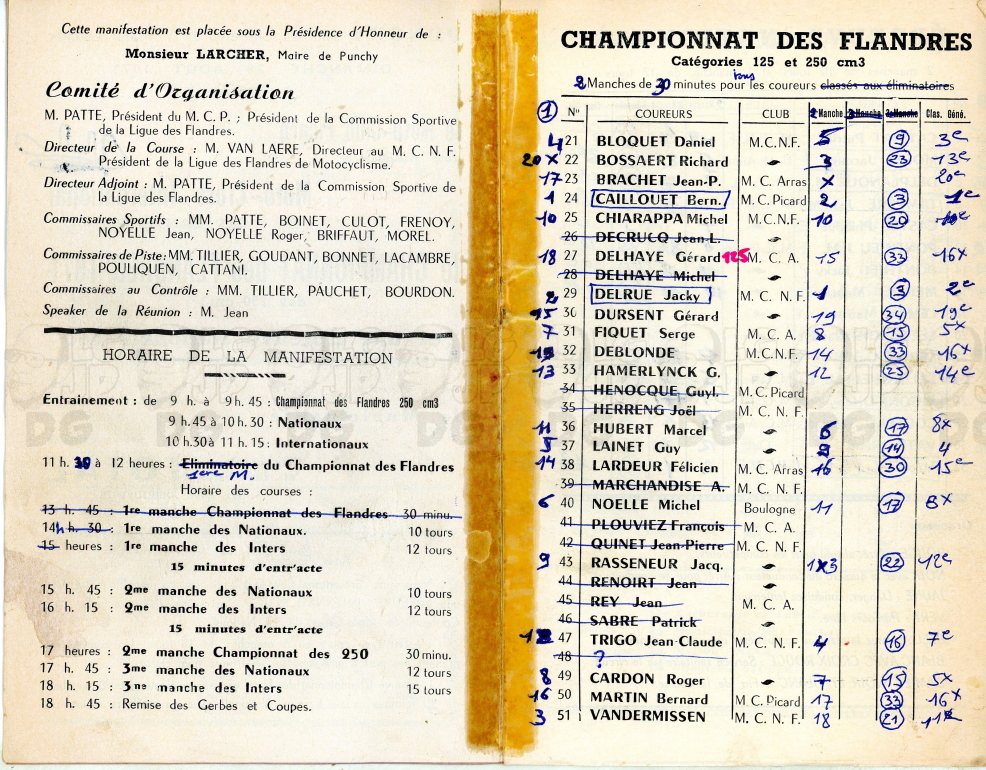 Cette manifestation est placée sous la Présidence d'Honneur de :
Monsieur LARCHER, Maire de Punchy
Comité d'Organisation
M. PATTE, Président du M. C. P. ; Président de la Commission Sportive
de la Ligue des Flandres.
Directeur de la Course : M. VAN LAERE, Directeur au M. C. N. F.
Président de la Ligue des Flandres de Motocyclisme.
Directeur Adjoint : M. PATTE, Président de la Commission Sportive de
la Ligue des Flandres.
Commissaires Sportifs : MM. PATTE, BOINET, CULOT, FRENOY,
NOYELLE Jean, NOYELLE Roger, BRIFFAUT, MOREL.
Commissaires de Piste: MM. TILLIER, GOUDANT, BONNET, LACAMBRE,
POULIQUEN, CATTANI.
Commissaires au Contrôle : MM. TILLIER, PAUCHET, BOURDON.
Speaker de la Réunion : M. Jean
HORAIRE DE LA MANIFESTATION
Entrainement : de 9 h. à 9 h. 45 : Championnat des Flandres 250 cm3
9 h. 45 à 10 h. 30 : Nationaux
10 h. 30 à 11 h. 15 : Internationaux
11 h. 30 à 12 heures : Eliminatoire du Championnat des Flandres
1ere M.
Horaire des courses :
13 h. 45 : 1re manche Championnat des Flandres 30 minu.
14 h. 30 : 1re manche des Nationaux. 10 tours
15 heures : 1re manche des Inters 12 tours
15 minutes d'entr'acte
15 h. 45 : 2me manche des Nationaux 10 tours
16 h. 15 : 2me manche des Inters 12 tours
15 minutes d'entr'acte
17 heures : 2me manche Championnat des 250 30 minu.
17 h. 45 : 3me manche des Nationaux 12 tours
18 h. 15 : 3ne manche des Inters 15 tours
18 h. 45 : Remise des Gerbes et Coupes.
CHAMPIONNAT DES FLANDRES
Catégories 125 et 250 cm3
tous
2 Manches de 30 minutes pour les coureurs classés aux éliminatoires
1 No COUREURS CLUB 2 Manche Manche Manche Clas. Géné.
4 21 BLOQUET Daniel M.C.N.F. 5 9 3e
20 X 22 BOSSAERT Richard 3 23 13e
17 23 BRACHET Jean-P. M. C. Arras X 20e
1 24 CAILLOUET Bern. M.C. Picard 2 3 1e
10 25 CHIARAPPA Michel M.C.N.F. 10 20
26 DECRUCQ Jean-L.
18 27 DELHAYE Gérard 125 M. C. A. 15 33 16x
28 DELHAYE Michel
2 29 DELRUE Jacky M. C. N. F. 1 3 2e
15 30 DURSENT Gérard 19 34 19e
7 31 FIQUET Serge M. C. A. 8 15 5x
32 DEBLONDE M.C.N.F. 14 33 16x
13 33 HAMERLYNCK G. 12 25 14e
34 HENOCQUE Guyl. M.C. Picard
35 HERRENG Joël M. C. N. F.
11 36 HUBERT Marcel 6 17 8x
5 37 LAINET Guy 14 4
14 38 LARDEUR Félicien M. C. Arras 16 30 15e
39 MARCHANDISE A. M. C. N. F.
6 40 NOELLE Michel Boulogne 11 17 8x
41 PLOUVIEZ François M. C. A.
42 QUINET Jean-Pierre M. C. N. F.
9 43 RASSENEUR Jacq. 13 22 12e
44 RENOIRT Jean
45 REY Jean M. C. A.
46 SABRE Patrick
12 47 TRIGO Jean-Claude M. C. N. F. 4 16 7e
48 ?
8 49 CARDON Roger 7 15 5x
16 50 MARTIN Bernard M C. Picard 17 33 16x
3 51 VANDERMISSEN M. C. N. F. 18 21